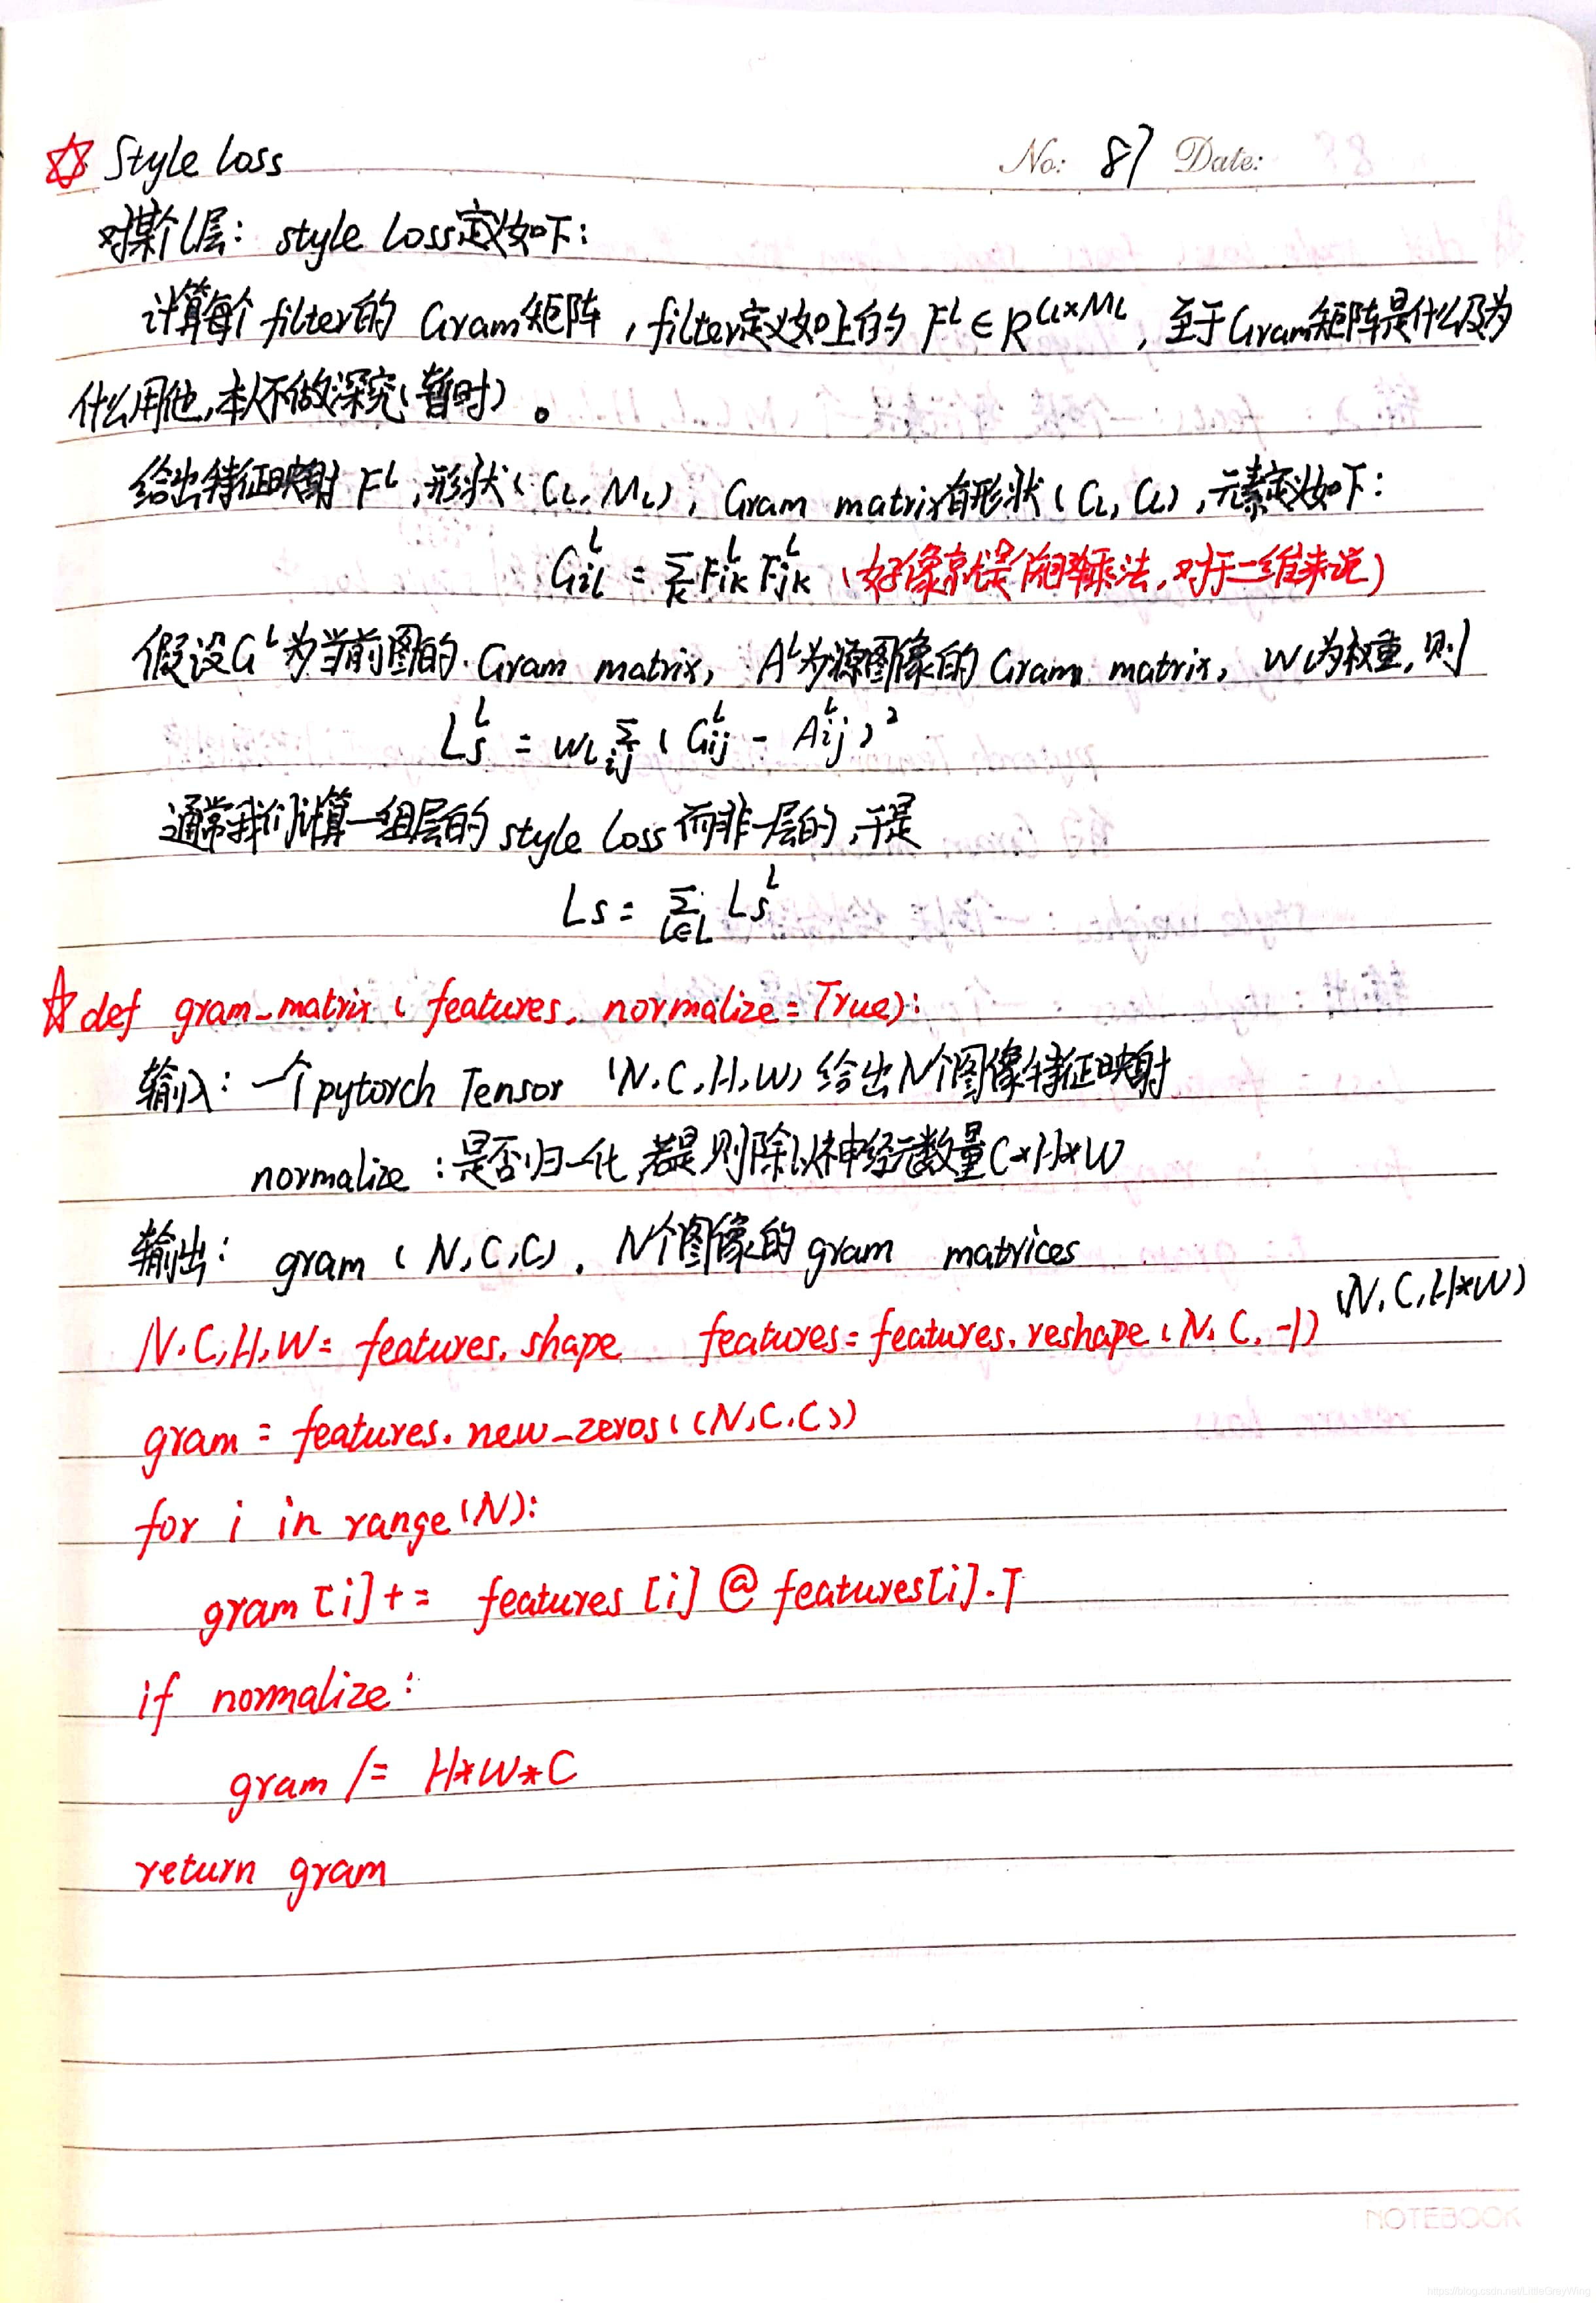 Style loss
No: 87 Date:
对某个l层: style loss定义如下:
计算每个filter的 Gram矩阵, filter定义如上的 Fˡ∈R^(Cl×Ml), 至于Gram矩阵是什么及为
什么用他,本人不做深究(暂时)。
给出特征映射 Fˡ,形状(Cl, Ml), Gram matrix有形状(Cl, Cl),元素定义如下:
Gᵢₗˡ = Σₖ Fᵢₖˡ Fⱼₖˡ (好像就是做矩阵乘法,对于二维来说)
假设Gˡ为当前图的 Gram matrix, Aˡ为源图像的 Gram matrix, wl为权重,则
Lsˡ = wl Σᵢⱼ (Gᵢⱼˡ - Aᵢⱼˡ)²
通常我们计算一组层的 style loss 而非一层的,于是
Ls = Σ_(l∈L) Lsˡ
def gram_matrix (features, normalize=True):
输入: 一个pytorch Tensor (N,C,H,W) 给出N个图像特征映射
normalize :是否归一化,若是则除以神经元数量C*H*W
输出: gram (N,C,C), N个图像的 gram matrices
N,C,H,W= features.shape features= features.reshape(N,C,-1) (N,C,H*W)
gram = features.new_zeros((N,C,C))
for i in range(N):
gram[i] += features[i] @ features[i].T
if normalize:
gram /= H*W*C
return gram
NOTEBOOK
https://blog.csdn.net/LittleGreyWing